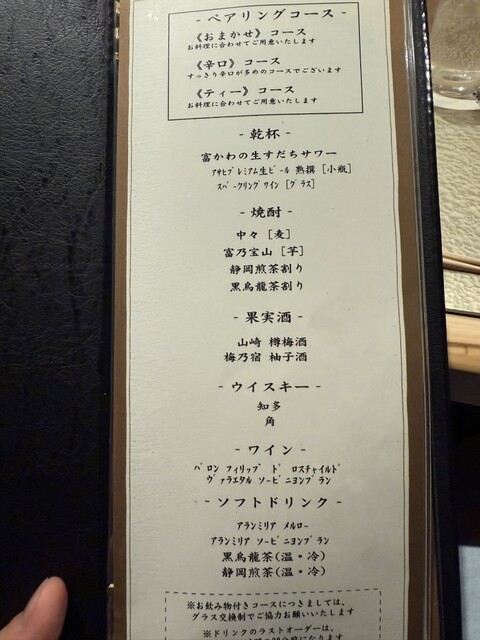 - ペアリングコース -
《おまかせ》コース
お料理に合わせてご用意いたします
《辛口》コース
すっきり辛口が多めのコースでございます
《ティー》コース
お料理に合わせてご用意いたします
- 乾杯 -
富かわの生すだちサワー
ｱｻﾋﾌﾟﾚﾐｱﾑ生ﾋﾞｰﾙ 熟撰 [小瓶]
ｽﾊﾟｰｸﾘﾝｸﾞﾜｲﾝ [ｸﾞﾗｽ]
- 焼酎 -
中々 [麦]
富乃宝山 [芋]
静岡煎茶割り
黒烏龍茶割り
- 果実酒 -
山崎 樽梅酒
梅乃宿 柚子酒
- ウイスキー -
知多
角
- ワイン -
ﾊﾞﾛﾝ ﾌｨﾘｯﾌﾟ ﾄﾞ ﾛｽﾁｬｲﾙﾄﾞ
ヴｧﾗｴﾀﾙ ｿｰﾋﾞﾆﾖﾝﾌﾞﾗﾝ
- ソフトドリンク -
ｱﾗﾝﾐﾘｱ ﾒﾙﾛｰ
ｱﾗﾝﾐﾘｱ ｿｰﾋﾞﾆﾖﾝﾌﾞﾗﾝ
黒烏龍茶(温・冷)
静岡煎茶(温・冷)
※お飲み物付きコースにつきましては、
グラス交換制でご協力お願いいたします
※ドリンクのラストオーダーは、